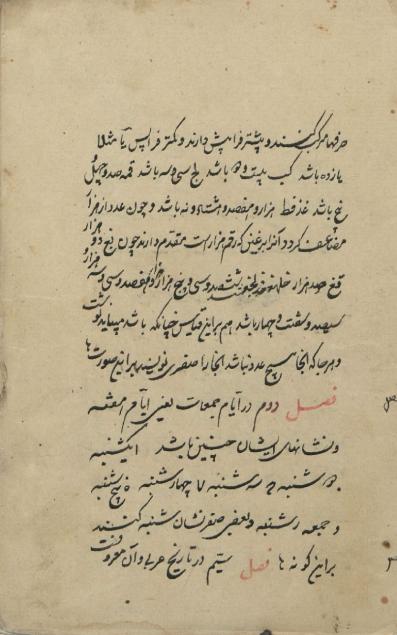 حرفها مرکب کنند و بیشتر فرا پیش دارند و کمتر فرا پس یا مثلا
یازده باشد کب بیست و دو باشد لج سی و سه باشد قمه صد و چهل و
پنج باشد غذفط هزار و هفتصد و هشتاد و نه باشد و چون عدد از هزار
مضاعف کردد آنرا بر غین که رقم هزار است مقدم دارند چون بغ دو هزار
قغ صد هزار
سیصد و شصت و چهار باشد هم براین قیاس چنانکه باشد میباید نوشت
و هر جا که آنجا هیچ عدد نباشد آنجا را صفری نویسند براین صورت ها
فصل دوم در ایام جمعات یعنی ایام هفته
و نشانهای ایشان چنین باشد ا یکشنبه
دوشنبه سه شنبه چهارشنبه ه پنج شنبه
و جمعه ز شنبه و بعضی صفر نشان شنبه کنند
براین کونه ها فصل سیم در تاریخ عربی و آن معروفست